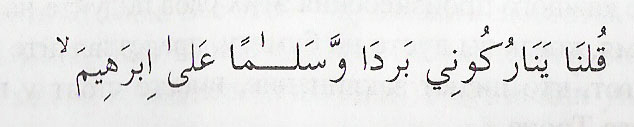 قُلنَا يَنَارُ كُونِي بَردَا وَّسَلـٰمًا عَلىٰ اِبرَهِيمَ ۙ